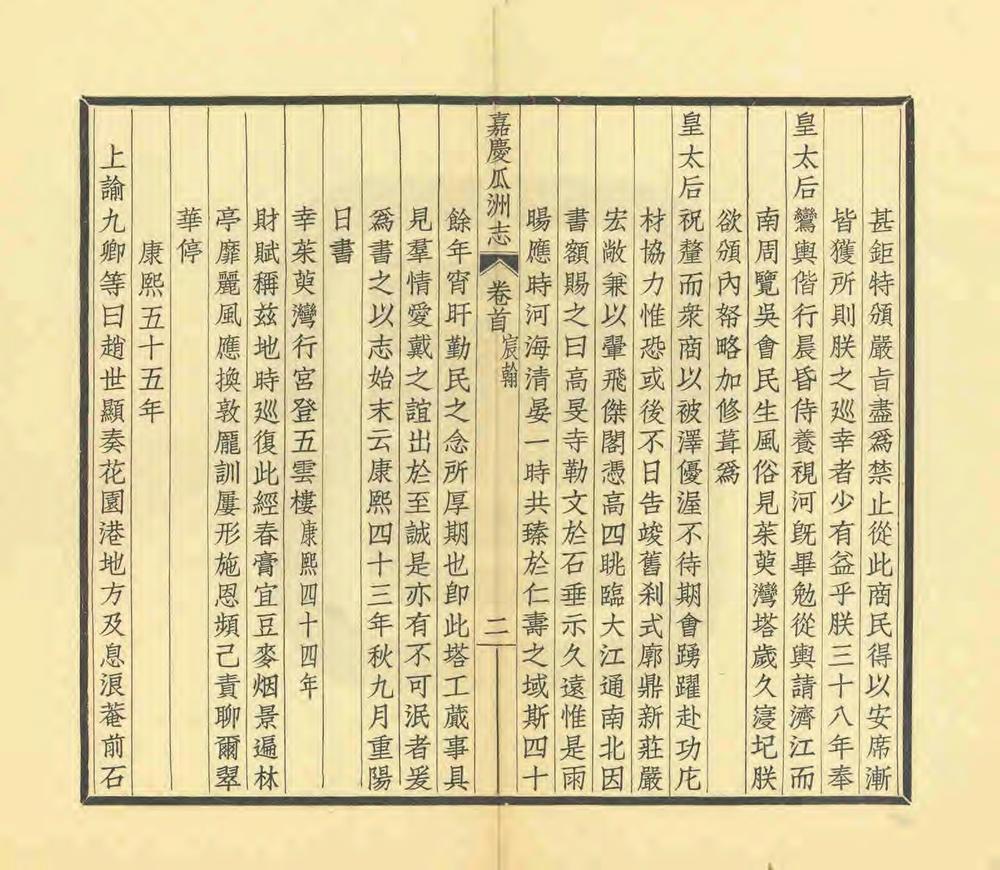 甚鉅特頒嚴旨盡爲禁止從此商民得以安席漸
皆獲所則朕之巡幸者少有益乎朕三十八年奉
皇太后鸞輿偕行晨昏侍養視河旣畢勉從輿請濟江而
南周覽吳會民生風俗見茱萸灣塔歲久寖圮朕
欲頒內帑略加修葺爲
皇太后祝釐而衆商以被澤優渥不待期會踴躍赴功庀
材協力惟恐或後不日告竣舊刹式廓鼎新莊嚴
宏敞兼以翬飛傑閣憑高四眺臨大江通南北因
書額賜之曰高旻寺勒文於石垂示久遠惟是雨
暘應時河海清晏一時共臻於仁壽之域斯四十
嘉慶瓜洲志 卷首 宸翰 二
餘年宵旰勤民之念所厚期也卽此塔工蕆事具
見羣情愛戴之誼出於至誠是亦有不可泯者爰
爲書之以志始末云康熙四十三年秋九月重陽
日書
幸茱萸灣行宮登五雲樓康熙四十四年
財賦稱茲地時巡復此經春膏宜豆麥烟景遍林
亭靡麗風應換敦龐訓屢形施恩頻己責聊爾翠
華停
康熙五十五年
上諭九卿等曰趙世顯奏花園港地方及息浪菴前石